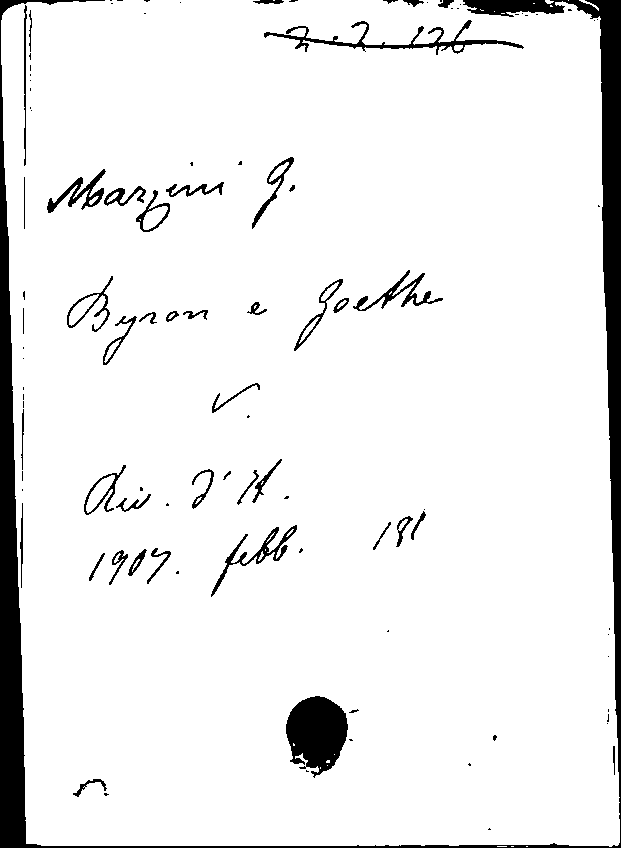 2.2.126
Mazzini G.
Byron e Goethe
v.
Riv. d'It.
1907. febb. 181